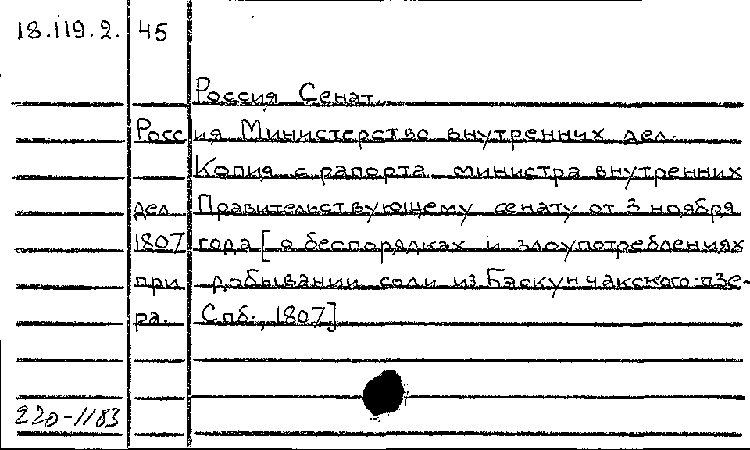 18.119.2. 45
Россия Сенат.
Россия Министерство внутренних дел.
Копия с рапорта министра внутренних
дел Правительствующему сенату от 3 ноября
1807 года [о беспорядках и злоупотреблениях
при добывании соли из Баскунчакского озе-
ра. Спб., 1807]
220-1183